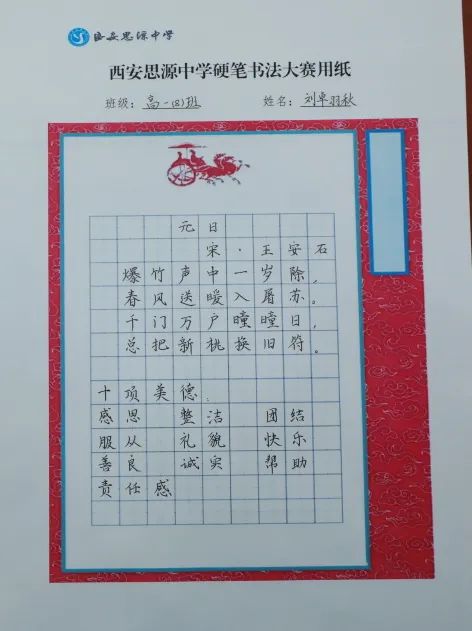 西安思源中学
西安思源中学硬笔书法大赛用纸
班级：高一(8)班 姓名：刘卓羽秋
元日
宋·王安石
爆竹声中一岁除，
春风送暖入屠苏。
千门万户曈曈日，
总把新桃换旧符。
十项美德：
感恩 整洁 团结
服从 礼貌 快乐
善良 诚实 帮助
责任感